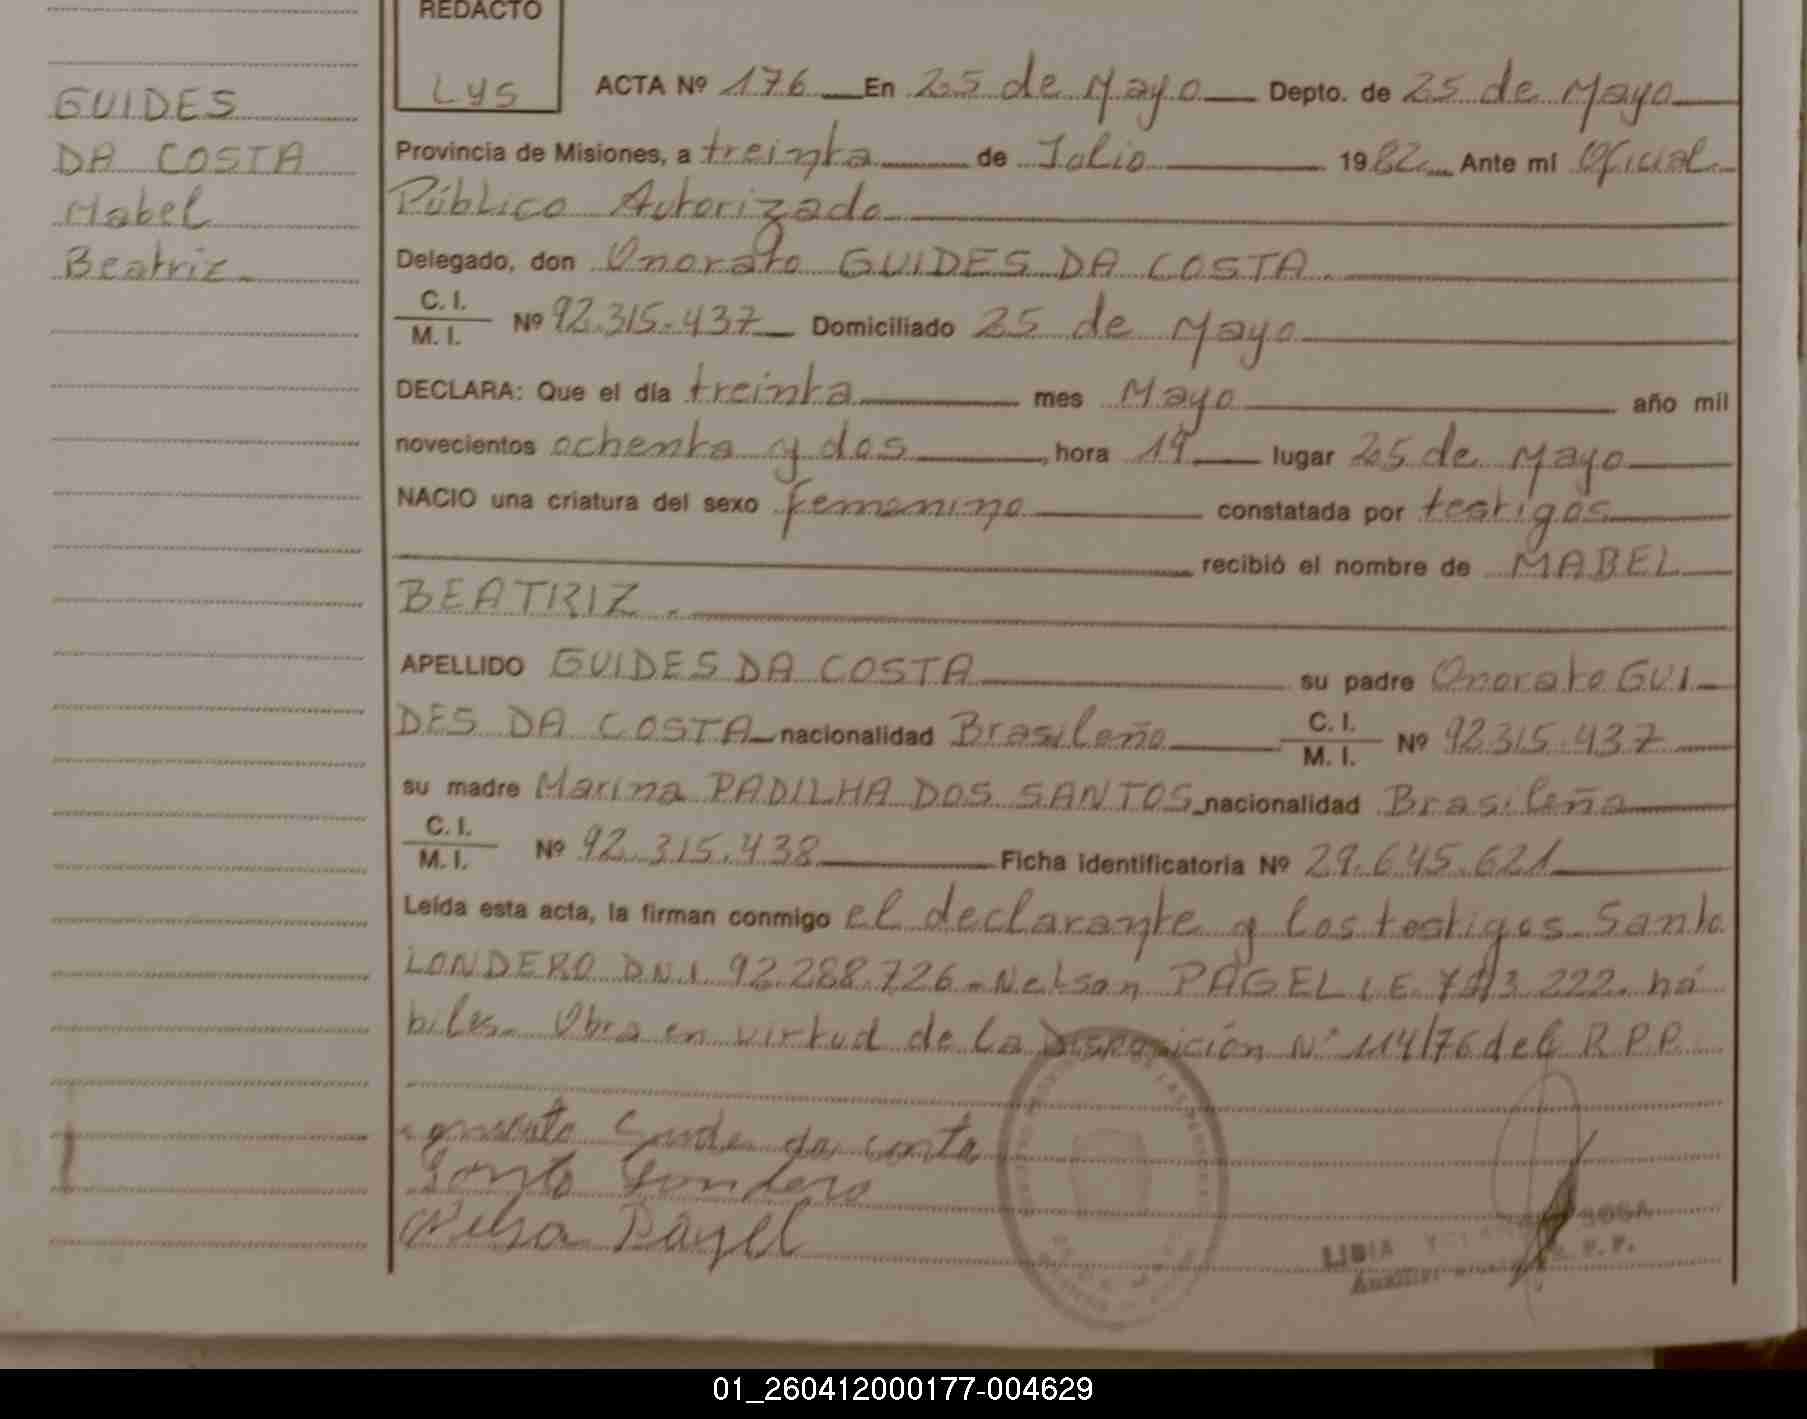 REDACTO
LyS
GUIDES
DA COSTA
Mabel
Beatriz
ACTA Nº 176 En 25 de Mayo Depto. de 25 de Mayo
Provincia de Misiones, a treinta de Julio 1982 Ante mí Oficial
Público Autorizado
Delegado, don Onorato GUIDES DA COSTA.
C. I.
M. I. Nº 92.315.437 Domiciliado 25 de Mayo
DECLARA: Que el día treinta mes Mayo año mil
novecientos ochenta y dos, hora 19 lugar 25 de Mayo
NACIO una criatura del sexo femenino constatada por testigos
recibió el nombre de MABEL
BEATRIZ.
APELLIDO GUIDES DA COSTA su padre Onorato GUI
DES DA COSTA nacionalidad Brasileño C. I. M. I. Nº 92315.437
su madre Marina PADILHA DOS SANTOS nacionalidad Brasileña
C. I.
M. I. Nº 92.315.438 Ficha identificatoria Nº 29.645.621
Leída esta acta, la firman conmigo el declarante y los testigos Santo
LONDERO DNI 92.288.726 - Nelson PAGEL L.E. 222. há
biles. Obra en virtud de la Disposición Nº 114/76 del R.P.P.
da costa
Santo Londero
Nelson Pagel
LIDIA SOSA
Auxiliar
01_260412000177-004629